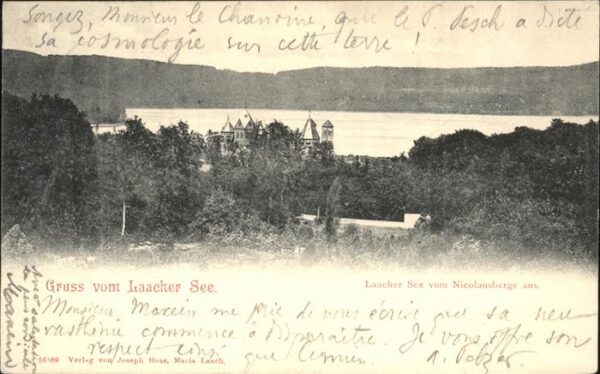 Songez, Monsieur le Chanoine, que le P. Pesch a dicté
sa cosmologie sur cette terre !
Gruss vom Laacher See.
Laacher See vom Nicolausberge aus.
Monsieur Marcin me prie de vous écrire que sa neu-
rasthénie commence à disparaître. Je vous offre son
respect ainsi que le mien.
56489 Verlag von Joseph Hess, Maria Laach.